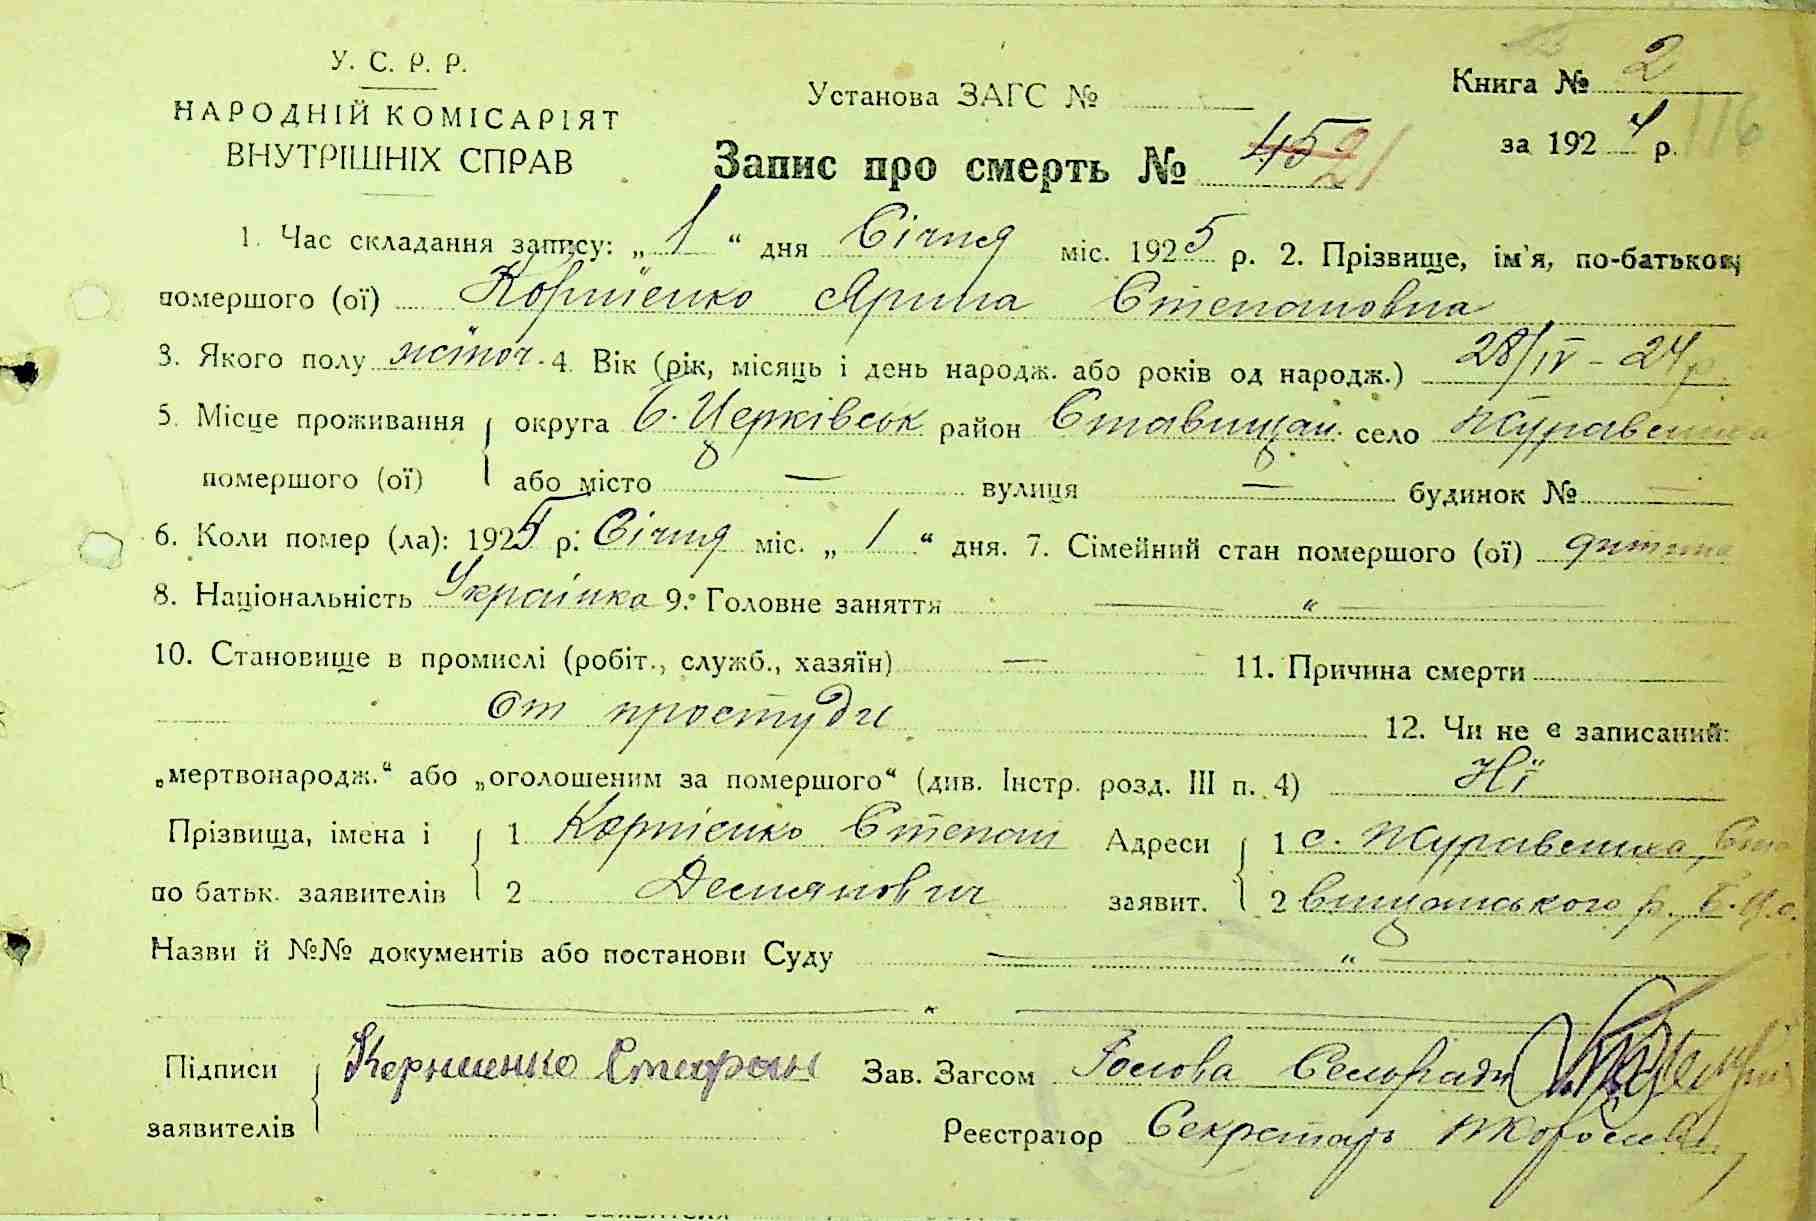 У. С. Р. Р.
НАРОДНІЙ КОМІСАРІЯТ
ВНУТРІШНІХ СПРАВ
Установа ЗАГС №
Книга № 2
за 1924 р.
116
Запис про смерть № 45 21
1. Час складання запису: „ 1 “ дня Січня міс. 1925 р. 2. Прізвище, ім'я, по-батькови
помершого (ої) Корпієнко Ярина Степановна
3. Якого полу жіноч. 4. Вік (рік, місяць і день народж. або років од народж.) 28/IV – 24 р.
5. Місце проживання помершого (ої) округа Б. Церківськ район Ставищан. село Журавлиха
або місто — вулиця — будинок № —
6. Коли помер (ла): 1925 р. Січня міс. „ 1 “ дня. 7. Сімейний стан помершого (ої) дитина
8. Національність Українка 9. Головне заняття — “ —
10. Становище в промислі (робіт., служб., хазяїн) — 11. Причина смерти
От простуди 12. Чи не є записаний:
„мертвонародж.“ або „оголошеним за помершого“ (див. Інстр. розд. III п. 4) Ні
Прізвища, імена і 1 Корпієнко Степан Адреси 1 с. Журавлиха, Ста
по батьк. заявителів 2 Демянович заявит. 2 вищанського р.
Назви й №№ документів або постанови Суду — “ —
— “ —
Підписи заявителів Степан Зав. Загсом Голова Сельради
Реєстратор Секретарь